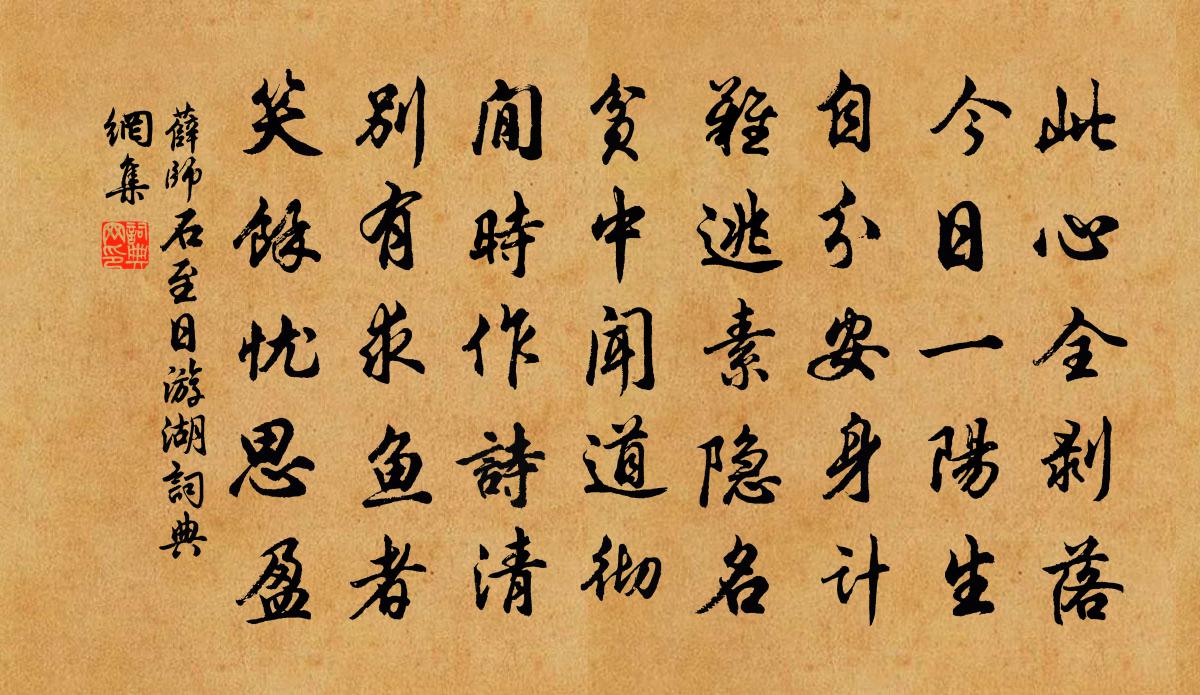 此心全剥落
今日一陽生
自分安身计
難逃素隐名
貧中聞道彻
閒時作詩清
别有求鱼者
笑餘忧思盈
薛師石至日游湖詞典
網集
詞典網印